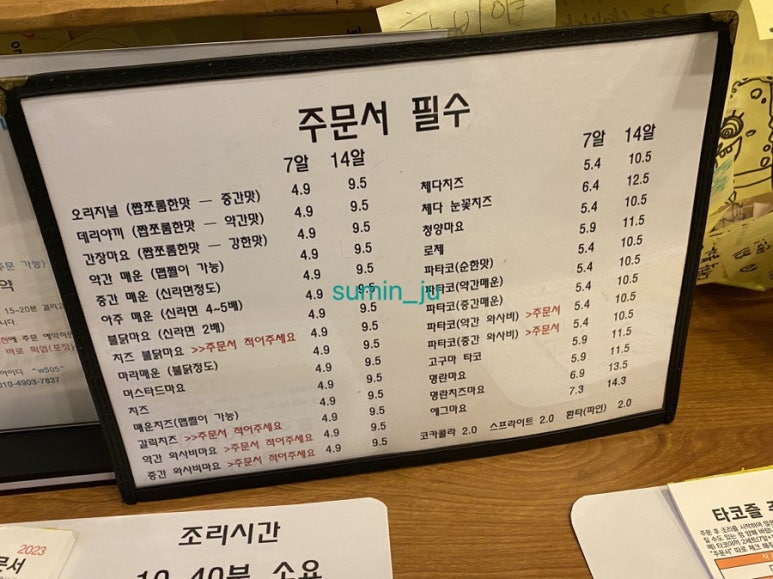 주문서 필수
7알 14알
오리지널 (짭쪼름한맛 — 중간맛) 4.9 9.5
데리야끼 (짭쪼름한맛 — 약간맛) 4.9 9.5
간장마요 (짭쪼름한맛 — 강한맛) 4.9 9.5
약간 매운 (맵찔이 가능) 4.9 9.5
중간 매운 (신라면정도) 4.9 9.5
아주 매운 (신라면 4~5배) 4.9 9.5
불닭마요 (신라면 2배) 4.9 9.5
치즈 불닭마요 >>주문서 적어주세요 4.9 9.5
마라매운 (불닭정도) 4.9 9.5
머스타드마요 4.9 9.5
치즈 4.9 9.5
매운치즈(맵찔이 가능) 4.9 9.5
갈릭치즈 >>주문서 적어주세요 4.9 9.5
약간 와사비마요 >주문서 적어주세요 4.9 9.5
중간 와사비마요 >주문서 적어주세요 4.9 9.5
7알 14알
체다치즈 5.4 10.5
체다 눈꽃치즈 6.4 12.5
청양마요 5.4 10.5
로제 5.9 11.5
파타코(순한맛) 5.4 10.5
파타코(약간매운) 5.4 10.5
파타코(중간매운) 5.4 10.5
파타코(약간 와사비) >주문서 5.4 10.5
파타코(중간 와사비) >주문서 5.4 10.5
고구마 타코 5.9 11.5
명란마요 5.9 11.5
명란치즈마요 6.9 13.5
에그마요 7.3 14.3
코카콜라 2.0 스프라이트 2.0 환타(파인) 2.0
sumin_ju
조리시간
10~40분 소요
2023
타코즐